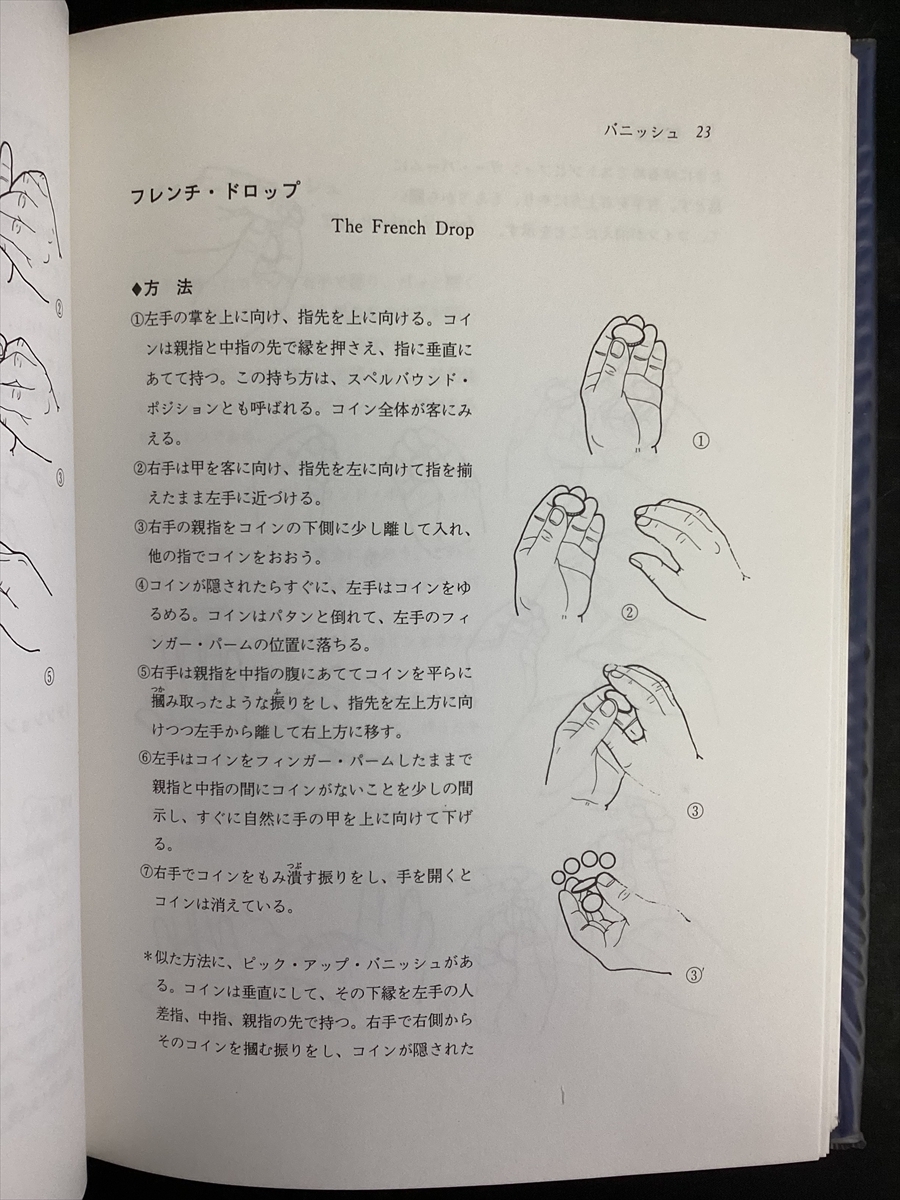 バニッシュ 23
フレンチ・ドロップ
The French Drop
◆方 法
①左手の掌を上に向け、指先を上に向ける。コイ
ンは親指と中指の先で縁を押さえ、指に垂直に
あてて持つ。この持ち方は、スペルバウンド・
ポジションとも呼ばれる。コイン全体が客にみ
える。
②右手は甲を客に向け、指先を左に向けて指を揃
えたまま左手に近づける。
③右手の親指をコインの下側に少し離して入れ、
他の指でコインをおおう。
④コインが隠されたらすぐに、左手はコインをゆ
るめる。コインはパタンと倒れて、左手のフィ
ンガー・パームの位置に落ちる。
⑤右手は親指を中指の腹にあててコインを平らに
摑み取ったような振りをし、指先を左上方に向
けつつ左手から離して右上方に移す。
⑥左手はコインをフィンガー・パームしたままで
親指と中指の間にコインがないことを少しの間
示し、すぐに自然に手の甲を上に向けて下げ
る。
⑦右手でコインをもみ潰す振りをし、手を開くと
コインは消えている。
＊似た方法に、ピック・アップ・バニッシュがあ
る。コインは垂直にして、その下縁を左手の人
差指、中指、親指の先で持つ。右手で右側から
そのコインを摑む振りをし、コインが隠された
①
②
③
③′
②
③
⑤